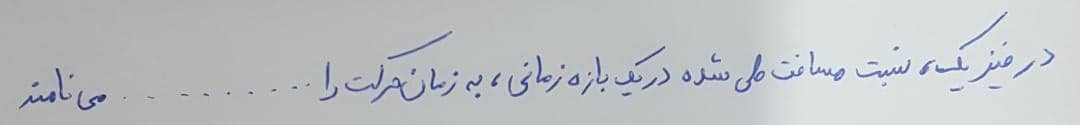 در فیزیک، نسبت مسافت طی شده در یک بازه زمانی، به زمان حرکت را .......... می نامند